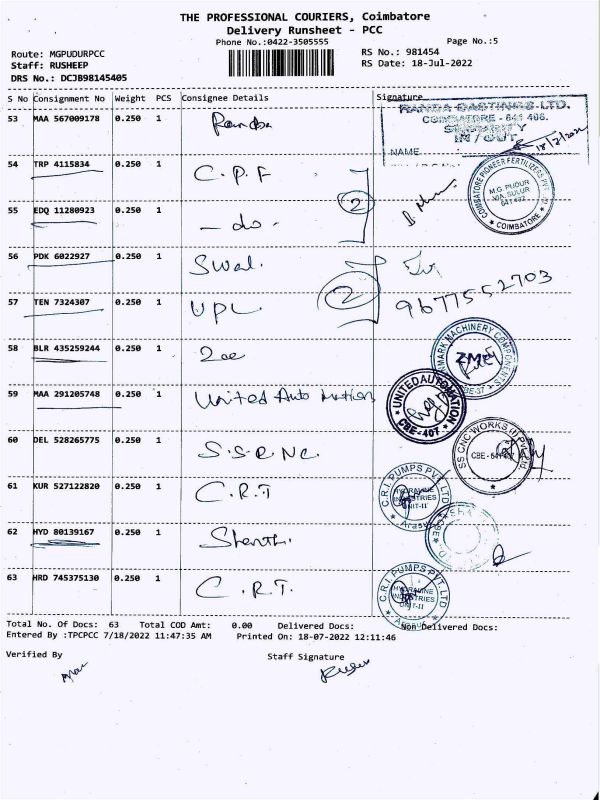 THE PROFESSIONAL COURIERS, Coimbatore
Delivery Runsheet - PCC
Phone No.:0422-3505555 Page No.:5
Route: MGPUDURPCC RS No.: 981454
Staff: RUSHEEP RS Date: 18-Jul-2022
DRS No.: DCJB98145405
S No Consignment No Weight PCS Consignee Details Signature
53 MAA 567009178 0.250 1
COIMBATORE - 641 406.
SECURITY
IN / OUT
NAME
54 TRP 4115834 0.250 1 C.P.F
2
COIMBATORE PIONEER FERTILIZERS PVT
M.G. PUDUR
VIA, SULUR
641 402
COIMBATORE
55 EDQ 11280923 0.250 1 - do -
56 PDK 6022927 0.250 1 Swal.
2
57 TEN 7324307 0.250 1 UPL 9677552703
58 BLR 435259244 0.250 1
MACHINERY COMPONENTS
59 MAA 291205748 0.250 1 United Auto Mation
UNITED AUTOMATION
CBE-407
60 DEL 528265775 0.250 1
SS CNC WORKS
61 KUR 527122820 0.250 1
C.R.I. PUMPS PVT. LTD
INDUSTRIES
UNIT-II
Arasur
62 HYD 80139167 0.250 1
63 HRD 745375130 0.250 1
C.R.I. PUMPS PVT. LTD
INDUSTRIES
UNIT-II
Arasur
Total No. Of Docs: 63 Total COD Amt: 0.00 Delivered Docs: Non Delivered Docs:
Entered By :TPCPCC 7/18/2022 11:47:35 AM Printed On: 18-07-2022 12:11:46
Verified By Staff Signature